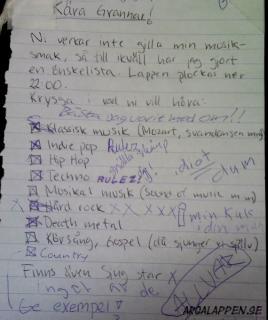 Kära Grannar!
Ni verkar inte gilla min musik-
smak, så till ikväll har jag gjort
en önskelista. Lappen plockas ner
22:00.
Kryssa i vad ni vill höra:
Klassisk musik (Mozart, Svandansen mm)
Indie pop Rulez
Hip Hop
Techno RULEZ!
idiot
dum
Musikal musik (Sound of music m m)
Hård rock X X X X X
min kuk
i din mun
Death metal
Körsång, Gospel (då sjunger vi själv)
Country
Finns även Sing star
inget av de
Ge exempel!
ARGALAPPEN.SE